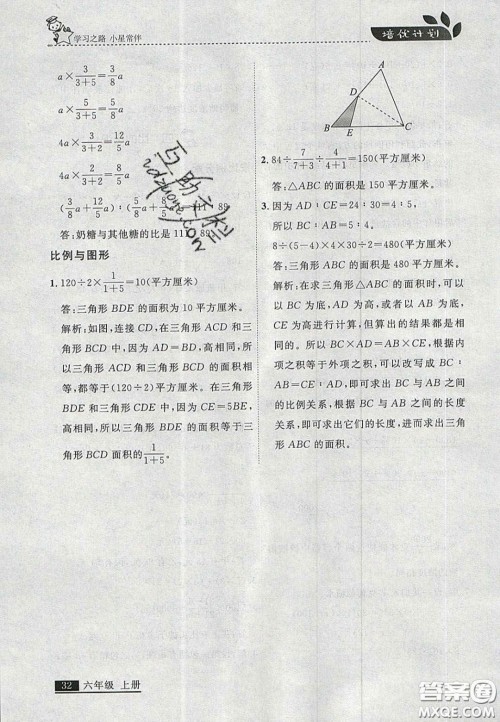 学习之路 小星常伴
培优计划
a×3/(3+5)=3/8a
a×5/(3+5)=5/8a
4a×3/(3+2)=12/5a
4a×2/(3+2)=8/5a
(3/8a+12/5a):(5/8a+8/5a)=111:89
答:奶糖与其他糖的比是111:89。
比例与图形
1. 120÷2×1/(1+5)=10(平方厘米)
答:三角形BDE的面积为10平方厘米。
解析:如图,连接CD,在三角形ACD和三
角形BCD中,因为AD=BD,高相同,所
以三角形ACD和三角形BCD的面积相
等,都等于(120÷2)平方厘米。在三角形
BDE和三角形DCE中,因为CE=5BE,
高相同,所以三角形BDE的面积等于三
角形BCD面积的1/(1+5)。
A
D
B
E
C
2. 84÷7/(7+3)÷4/(4+1)=150(平方厘米)
答:△ABC的面积是150平方厘米。
3. 因为AD:CE=24:30=4:5,
所以BC:AB=5:4。
8÷(5-4)×4×30÷2=480(平方厘米)
答:三角形ABC的面积是480平方厘米。
解析:在求三角形△ABC的面积时,可
以以BC为底,AD为高,或者以AB为底,
CE为高进行计算,但算出的结果都是相
同的。所以BC×AD=AB×CE,根据内
项之积等于外项之积,可以改写成BC
:AB=CE:AD,即可求出BC与AB之间
的比例关系,根据BC与AB之间的长度
关系,即可求出它们的长度,进而求出三角
形ABC的面积。
互助文档
zdzhone.com
32 六年级 上册
答案圈
MXQE.COM